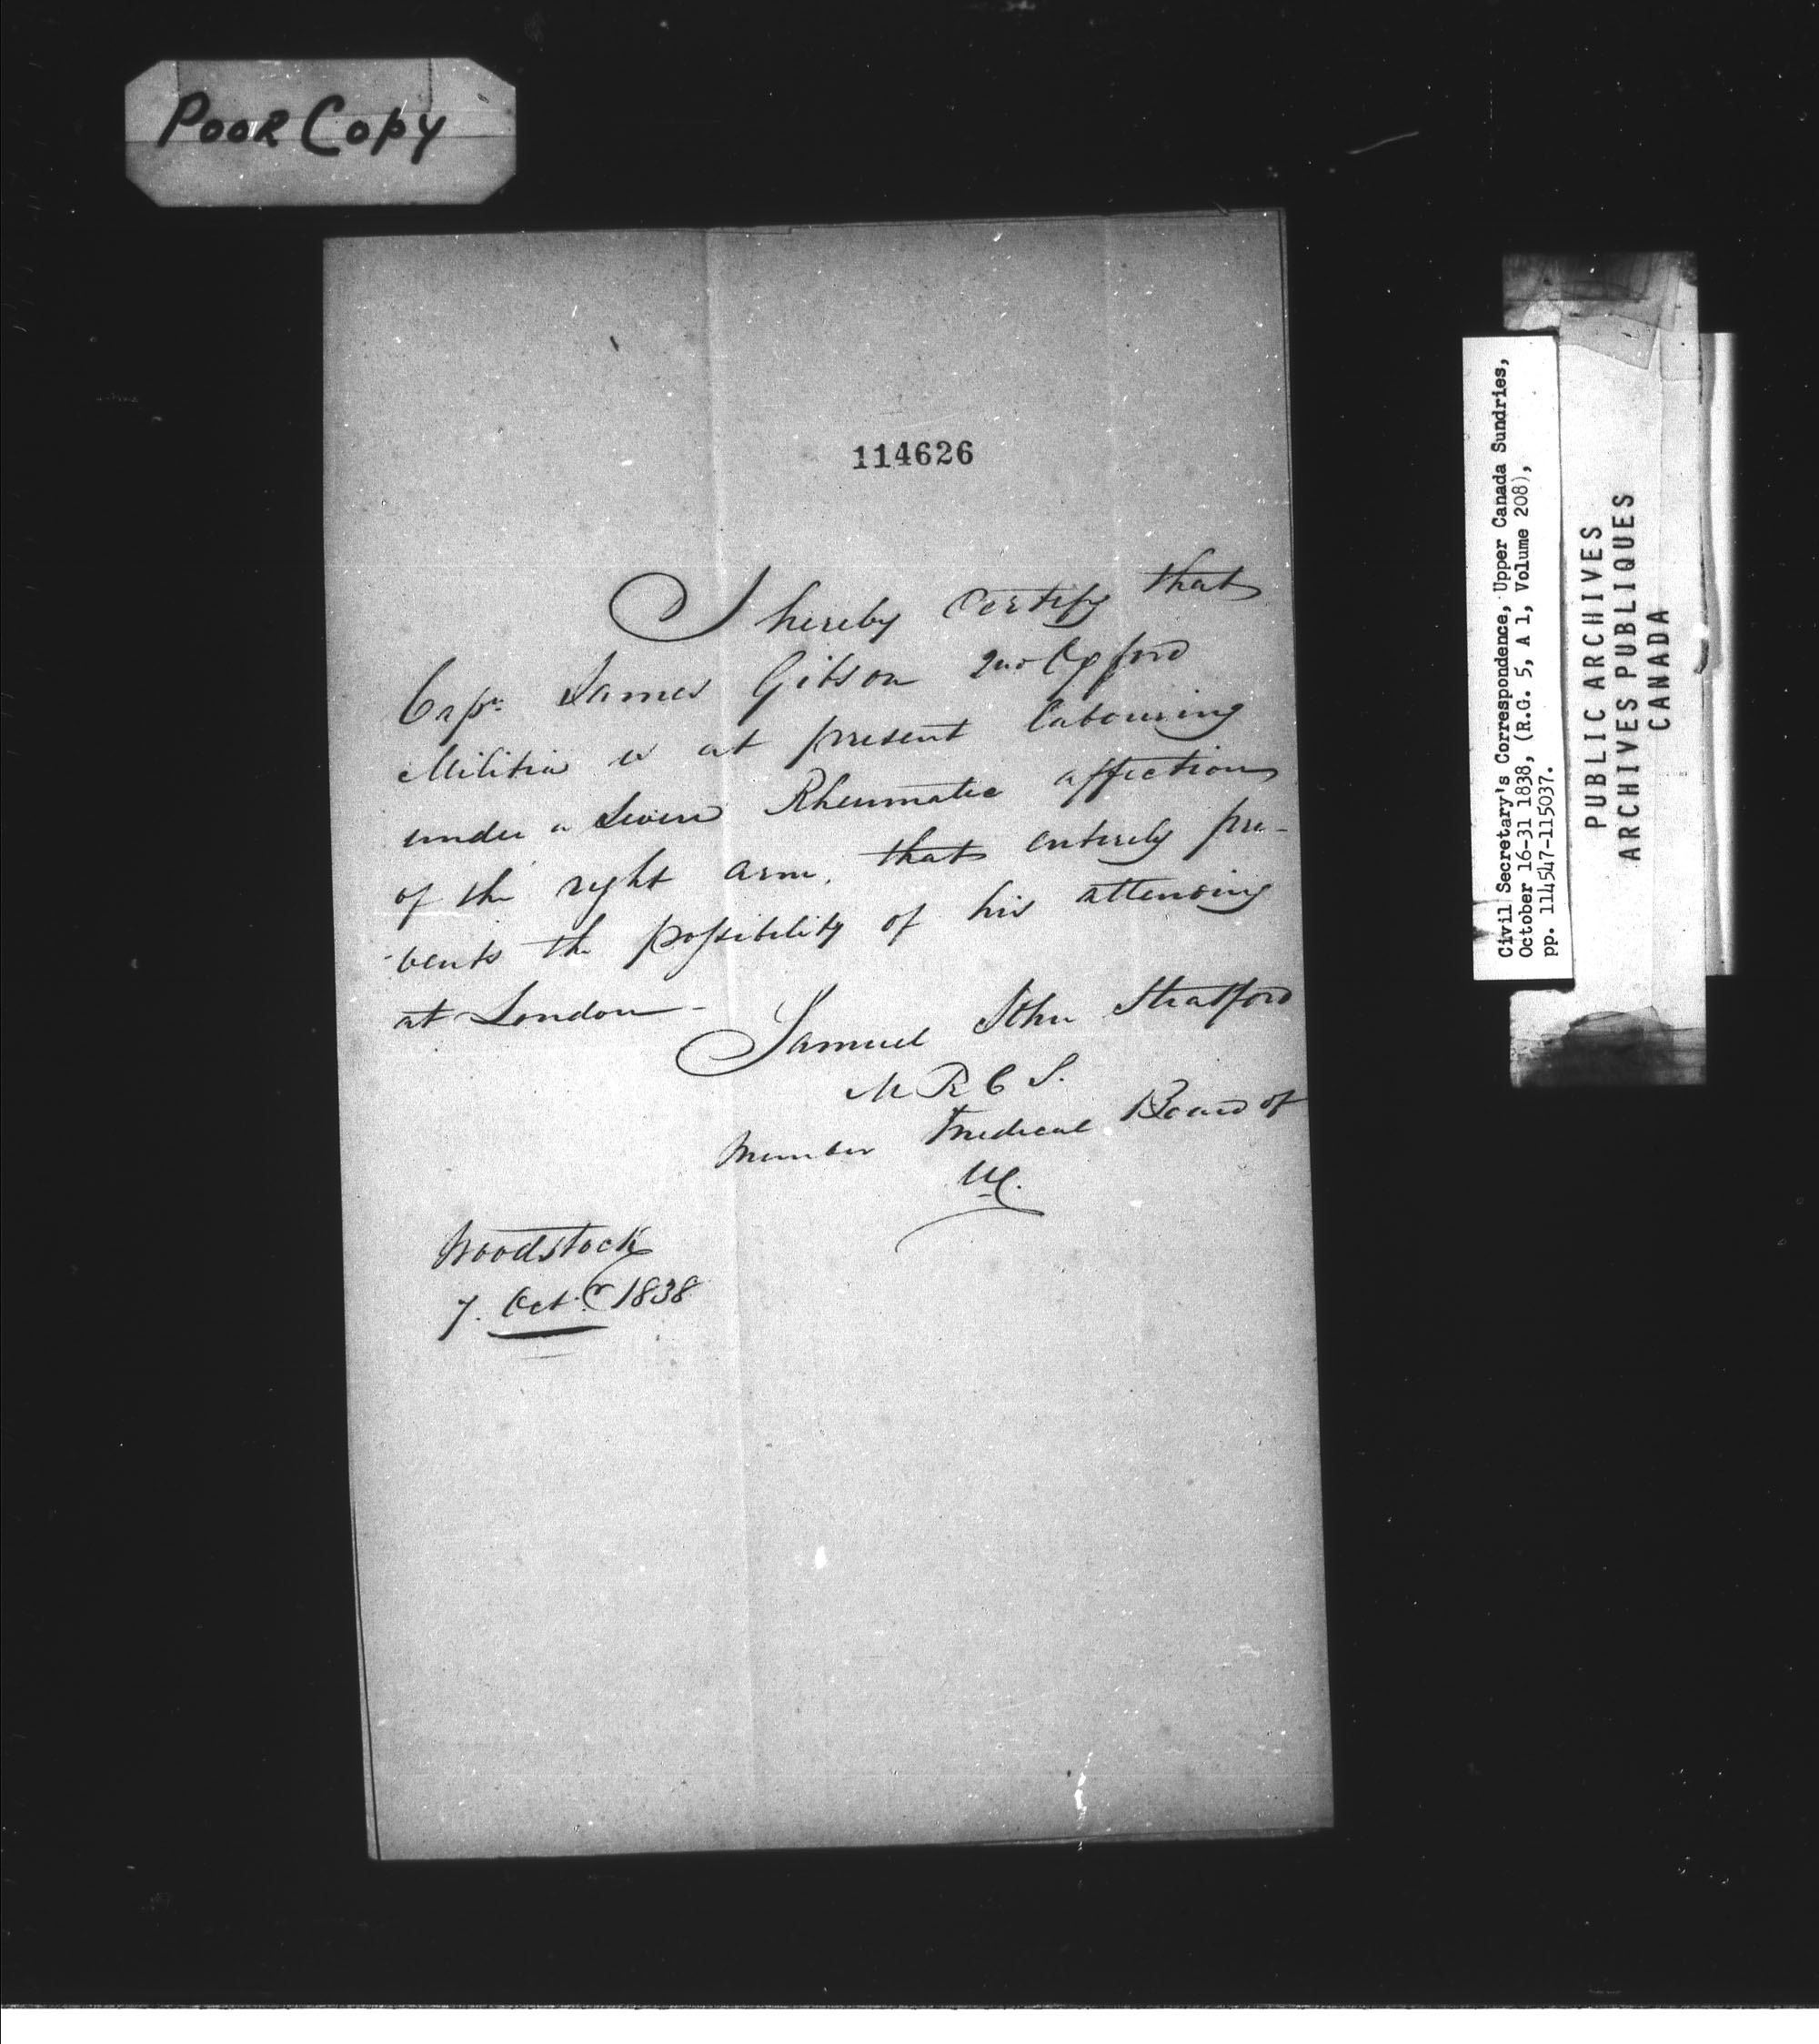 Poor Copy
114626
I hereby Certify that
Capn. James Gibson 2nd Oxford
Militia is at present labouring
under a Severe Rheumatic affection
of the right arm, that entirely pre-
-vents the possibility of his attending
at London -
Samuel Stratford
M R C S.
Member Medical Board of
UC.
Woodstock
7. Octr. 1838
Civil Secretary's Correspondence, Upper Canada Sundries,
October 16-31 1838, (R.G. 5, A 1, Volume 208),
pp. 114547-115037.
PUBLIC ARCHIVES
ARCHIVES PUBLIQUES
CANADA